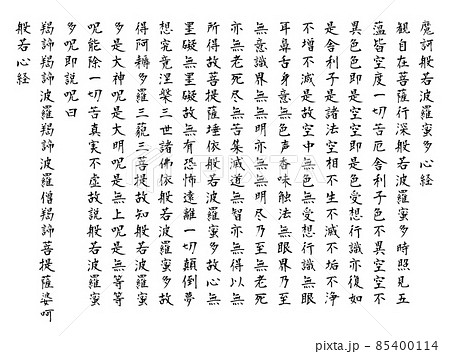 魔訶般若波羅蜜多心経
観自在菩薩行深般若波羅蜜多時照見五
蘊皆空度一切苦厄舎利子色不異空空不
異色色即是空空即是色受想行識亦復如
是舎利子是諸法空相不生不滅不垢不浄
不増不減是故空中無色無受想行識無眼
耳鼻舌身意無色声香味触法無眼界乃至
無意識界無無明亦無無明尽乃至無老死
亦無老死尽無苦集滅道無智亦無得以無
所得故菩提薩埵依般若波羅蜜多故心無
罣礙無罣礙故無有恐怖遠離一切顛倒夢
想究竟涅槃三世諸佛依般若波羅蜜多故
得阿耨多羅三藐三菩提故知般若波羅蜜
多是大神呪是大明呪是無上呪是無等等
呪能除一切苦真実不虚故説般若波羅蜜
多呪即説呪曰
羯諦羯諦波羅羯諦波羅僧羯諦菩提薩婆呵
般若心経
PIXTA
pixta.jp - 85400114